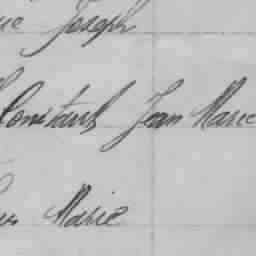 Joseph
Constant Jean Marie
Marie